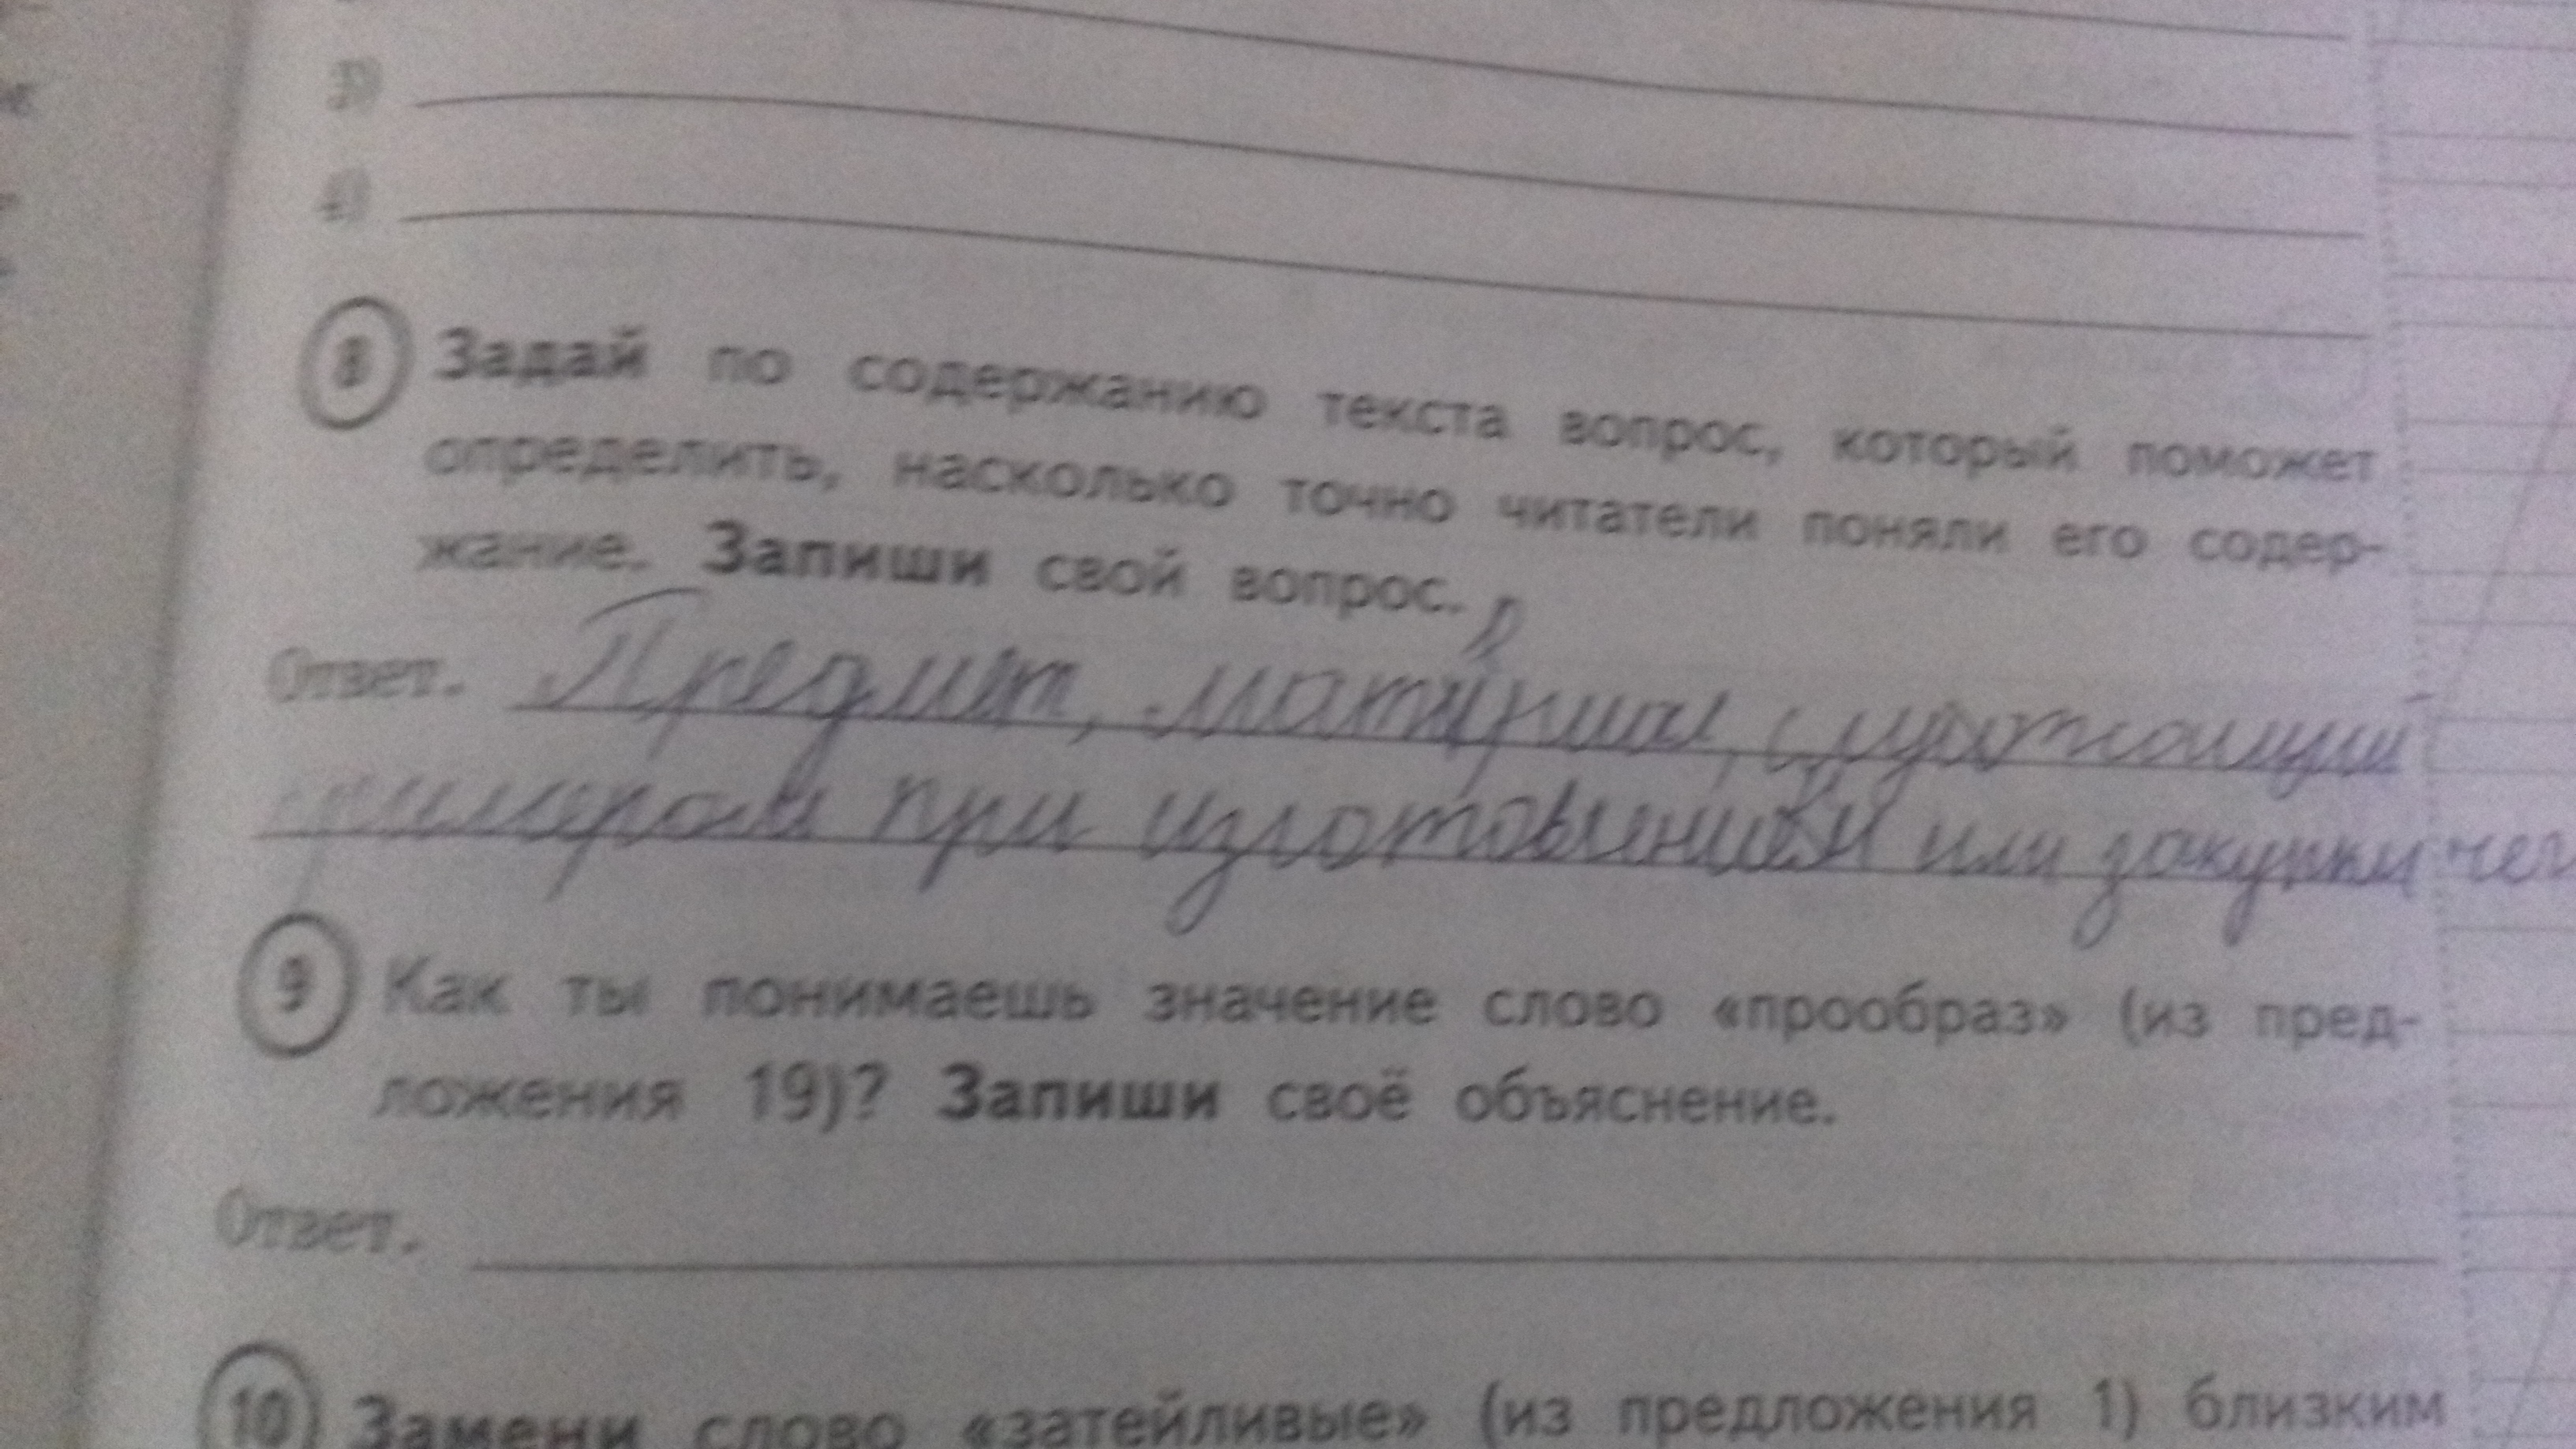 3)
4)
8 Задай по содержанию текста вопрос, который поможет
определить, насколько точно читатели поняли его содер-
жание. Запиши свой вопрос.
Ответ. Предмет, материал, служащий
примером при изготовлений или закупки чег
9 Как ты понимаешь значение слово «прообраз» (из пред-
ложения 19)? Запиши своё объяснение.
Ответ.
10 Замени слово «затейливые» (из предложения 1) близким